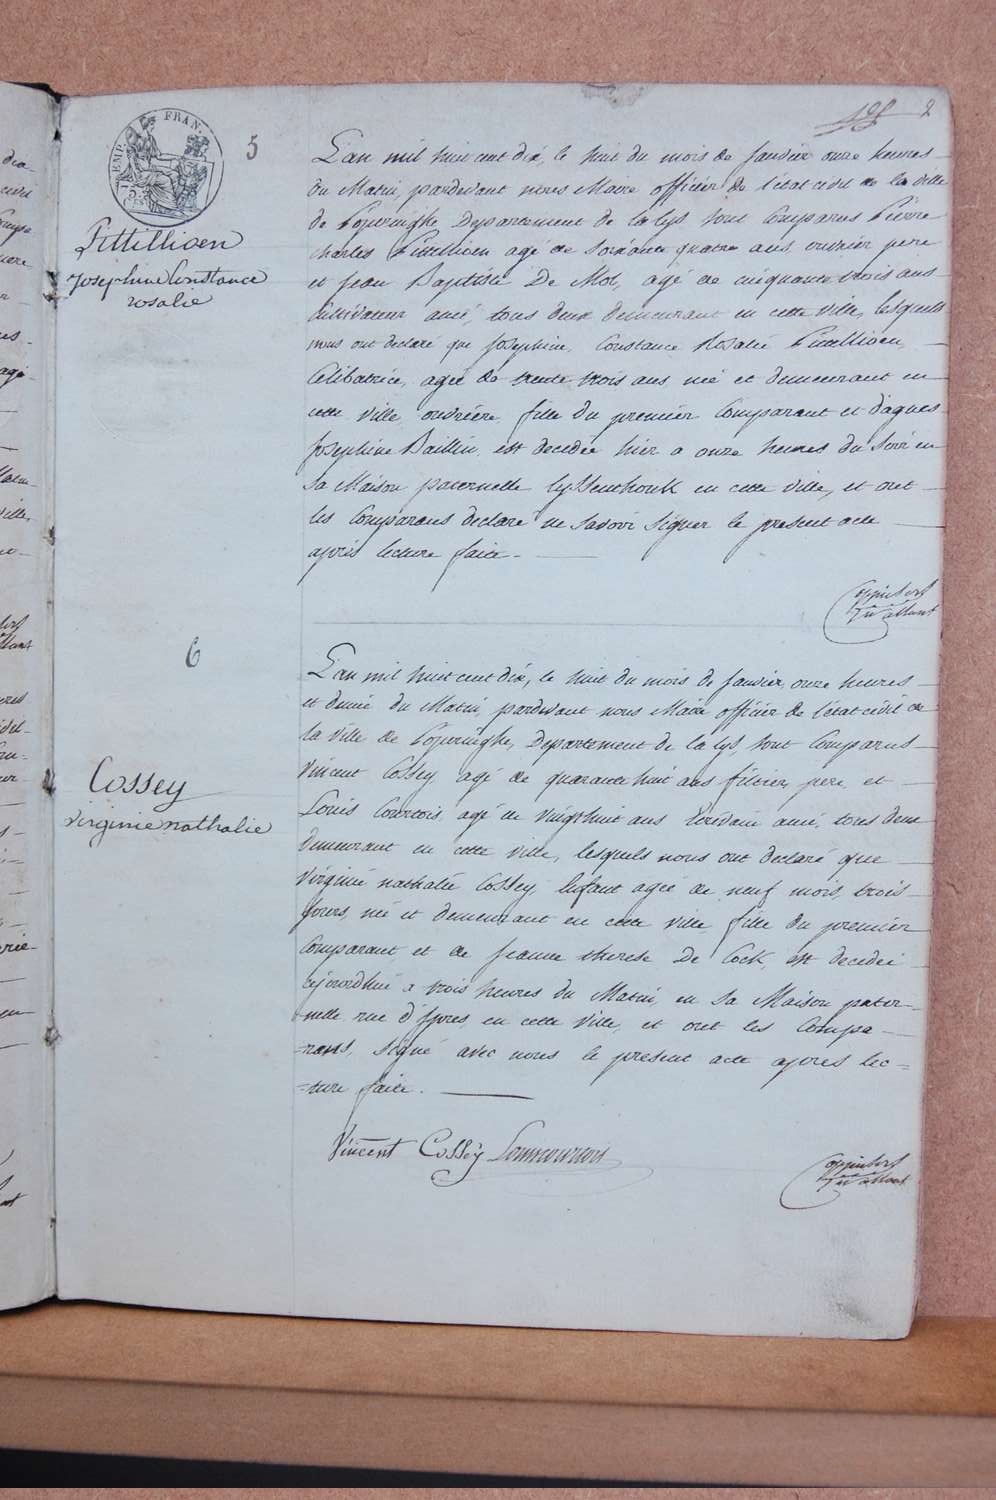 2
EMP. FRAN.
5
Pittillioen
Josephine Constance
rosalie
L'an mil huit cent dix, le huit du mois de Janvier onze heures
du Matin, pardevant nous Maire officier de l'état civil de la ville
de Poperinghe, Departement de la Lys sont Comparus Pierre
charles Pittillioen agé de soixante quatre ans ouvrier pere
et jean Baptiste De Mol, agé de cinquante trois ans
Cultivateur ami, tous deux demeurant en cette ville, lesquels
nous ont declaré que Josephine, Constance Rosalie Pittillioen,
Celibatrice, agée de trente trois ans née et demeurant en
cette ville, ouvrière, fille du premier Comparant et d'agnes
Josephine Baillin, est decedée hier a onze heures du Soir en
sa Maison paternelle en cette ville, et ont
les Comparans declaré ne savoir signer le present acte
après lecture faite.
6
Cossey
virginie nathalie
L'an mil huit cent dix, le huit du mois de Janvier, onze heures
et demie du Matin, pardevant nous Maire officier de l'état civil de
la ville de Poperinghe, Departement de la Lys, sont Comparus
Vincent Cossey agé de quarante huit ans filtier, pere, et
Louis Courtois, agé de vingt huit ans ami, tous deux
demeurant en cette ville, lesquels nous ont declaré que
Virginie nathalie Cossey Enfant agée de neuf mois, trois
jours, née et demeurant en cette ville fille du premier
Comparant et de jeanne therese De Cock, est decedée
cejourdhui a trois heures du Matin, en sa Maison pater-
nelle, rue d'Ypres, en cette ville, et ont les Compa-
=rans, signé avec nous le present acte apres lec=
=ture faite.
Vincent Cossey Louis courtois